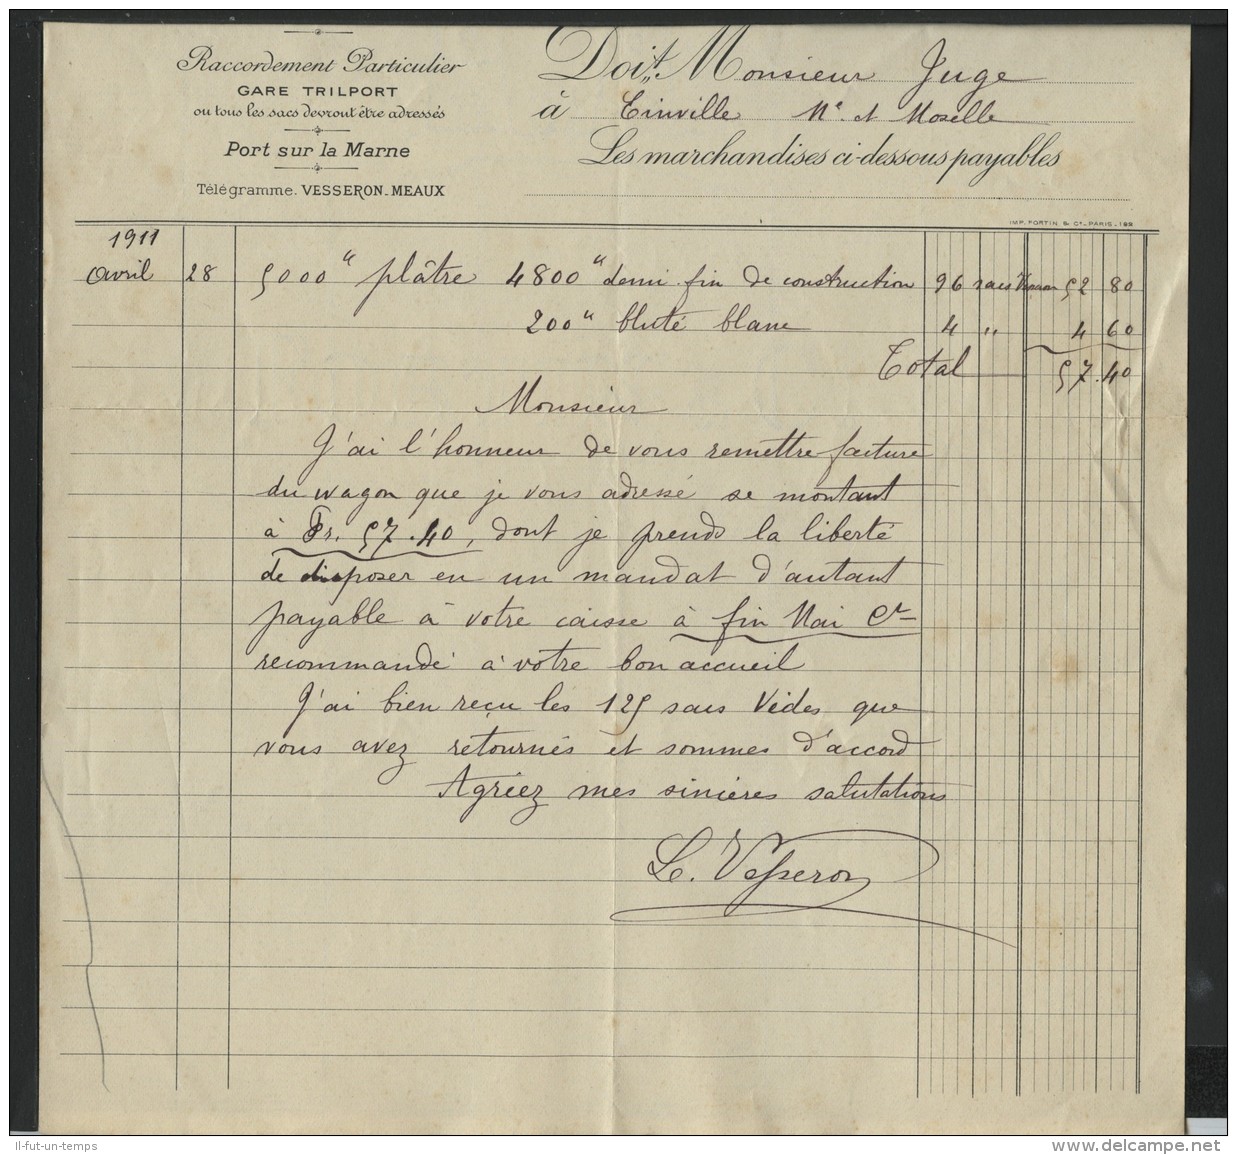 Raccordement Particulier
GARE TRILPORT
ou tous les sacs devront être adressés
Port sur la Marne
Télégramme. VESSERON-MEAUX
Doit Monsieur Juge
à Einville Mthe et Moselle
Les marchandises ci-dessous payables
IMP. FORTIN & Cie - PARIS - 199
1911
Avril 28 5000 k plâtre 4800 k demi fin de construction 96 sacs 52 80
200 k bluté blanc 4 " 4 60
Total 57.40
Monsieur
J'ai l'honneur de vous remettre facture
du wagon que je vous adressé se montant
à Fr. 57.40, dont je prends la liberté
de disposer en un mandat d'autant
payable à votre caisse à fin Mai Ct
recommandé à votre bon accueil
J'ai bien reçu les 125 sacs Vides que
vous avez retournés et sommes d'accord
Agréez mes sincères salutations
L. Vesseron
Il-fut-un-temps
www.delcampe.net